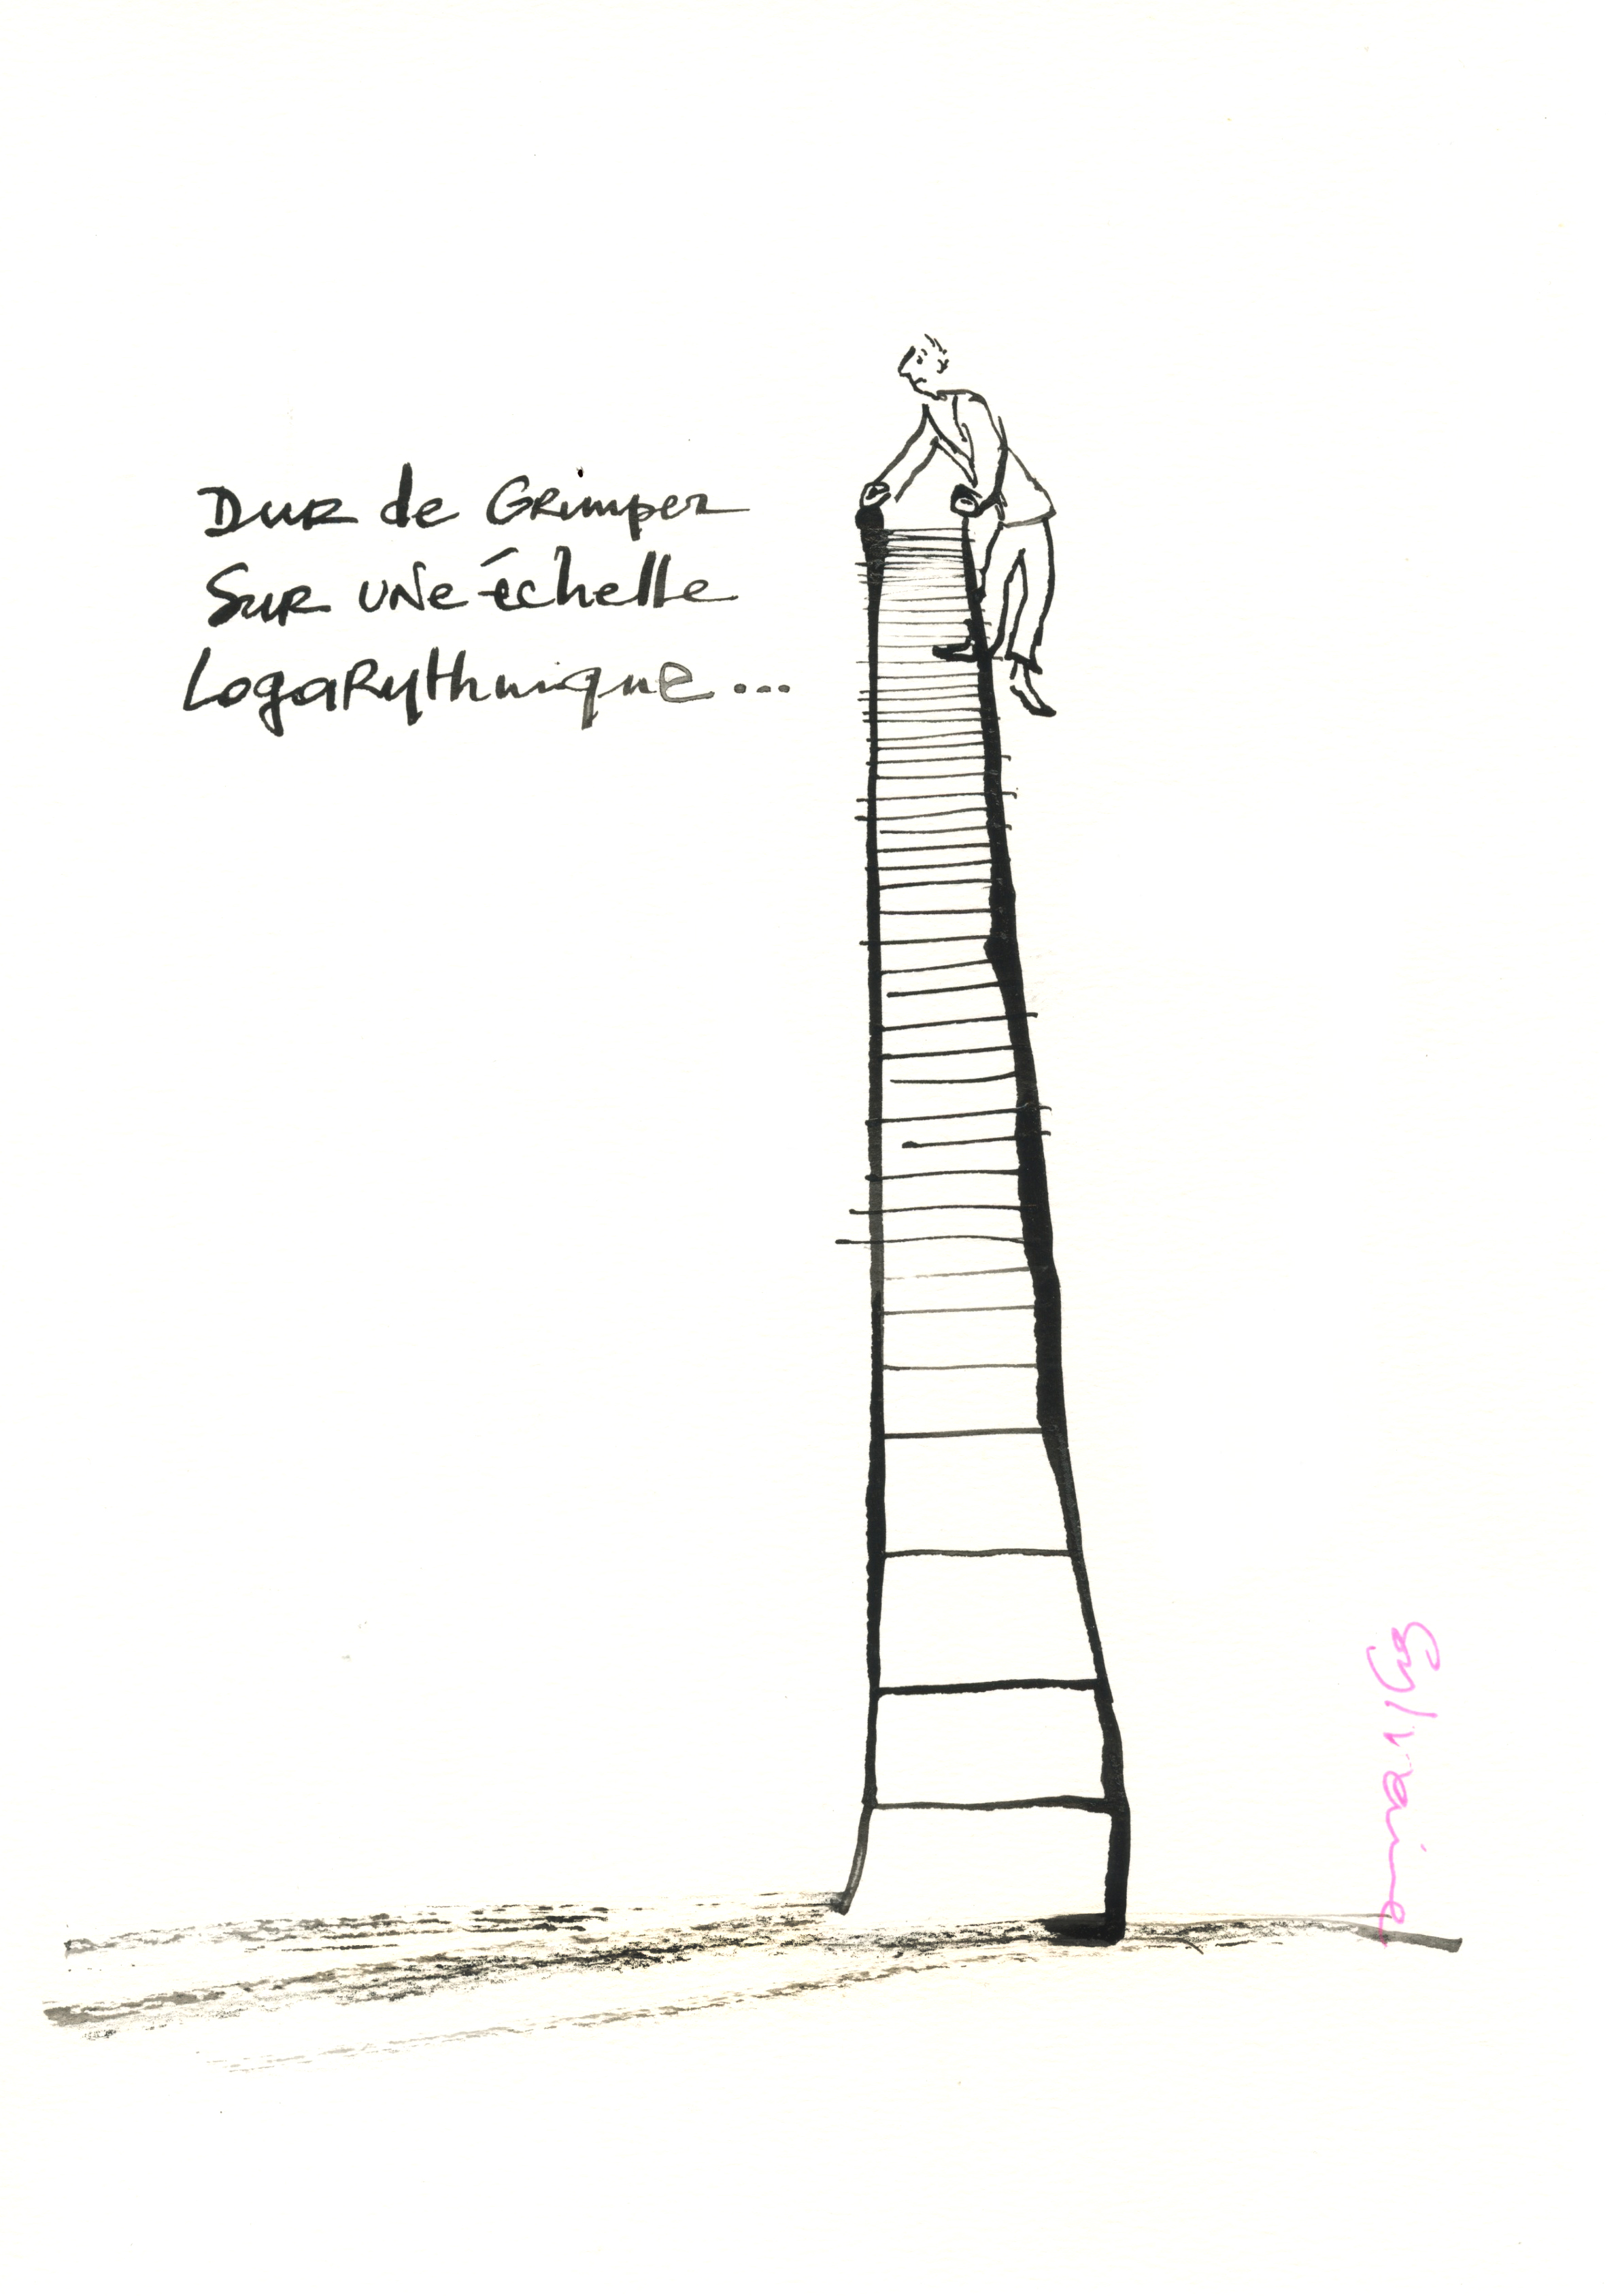 Dur de Grimper
Sur une échelle
Logarythmique...